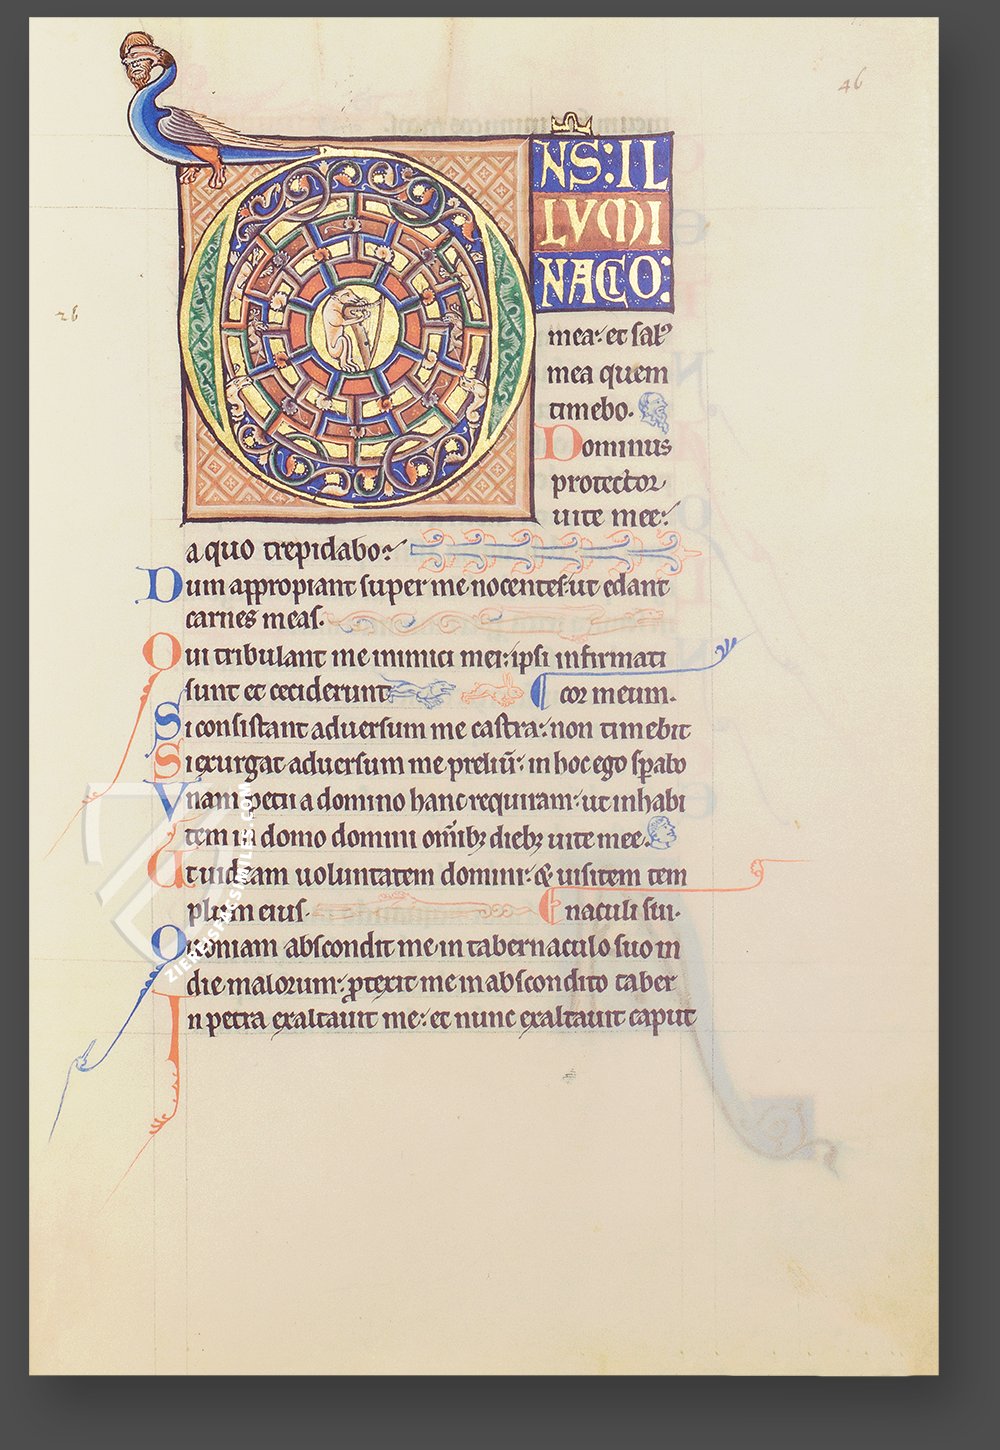 46
DNS: IL
LUMI
NACIO:
26
mea: et sal9
mea quem
timebo.
Dominus
protector
uite mee:
a quo trepidabo?
Dum appropiant super me nocentes: ut edant
carnes meas.
Qui tribulant me inimici mei: ipsi infirmati
sunt et ceciderunt cor meum.
Si consistant aduersum me castra: non timebit
Si exurgat aduersum me preliū: in hoc ego sperabo
Vnam petii a domino hanc requiram: ut inhabi
tem in domo domini om̄ibꝫ diebꝫ uite mee.
Ut uideam uoluntatem domini: & uisitem tem
plum eius. Enaculi sui.
Quoniam abscondit me in tabernaculo suo in
die malorum: ꝓtexit me in abscondito taber
In petra exaltauit me: et nunc exaltauit caput
ZIEREIS FACSIMILES.COM